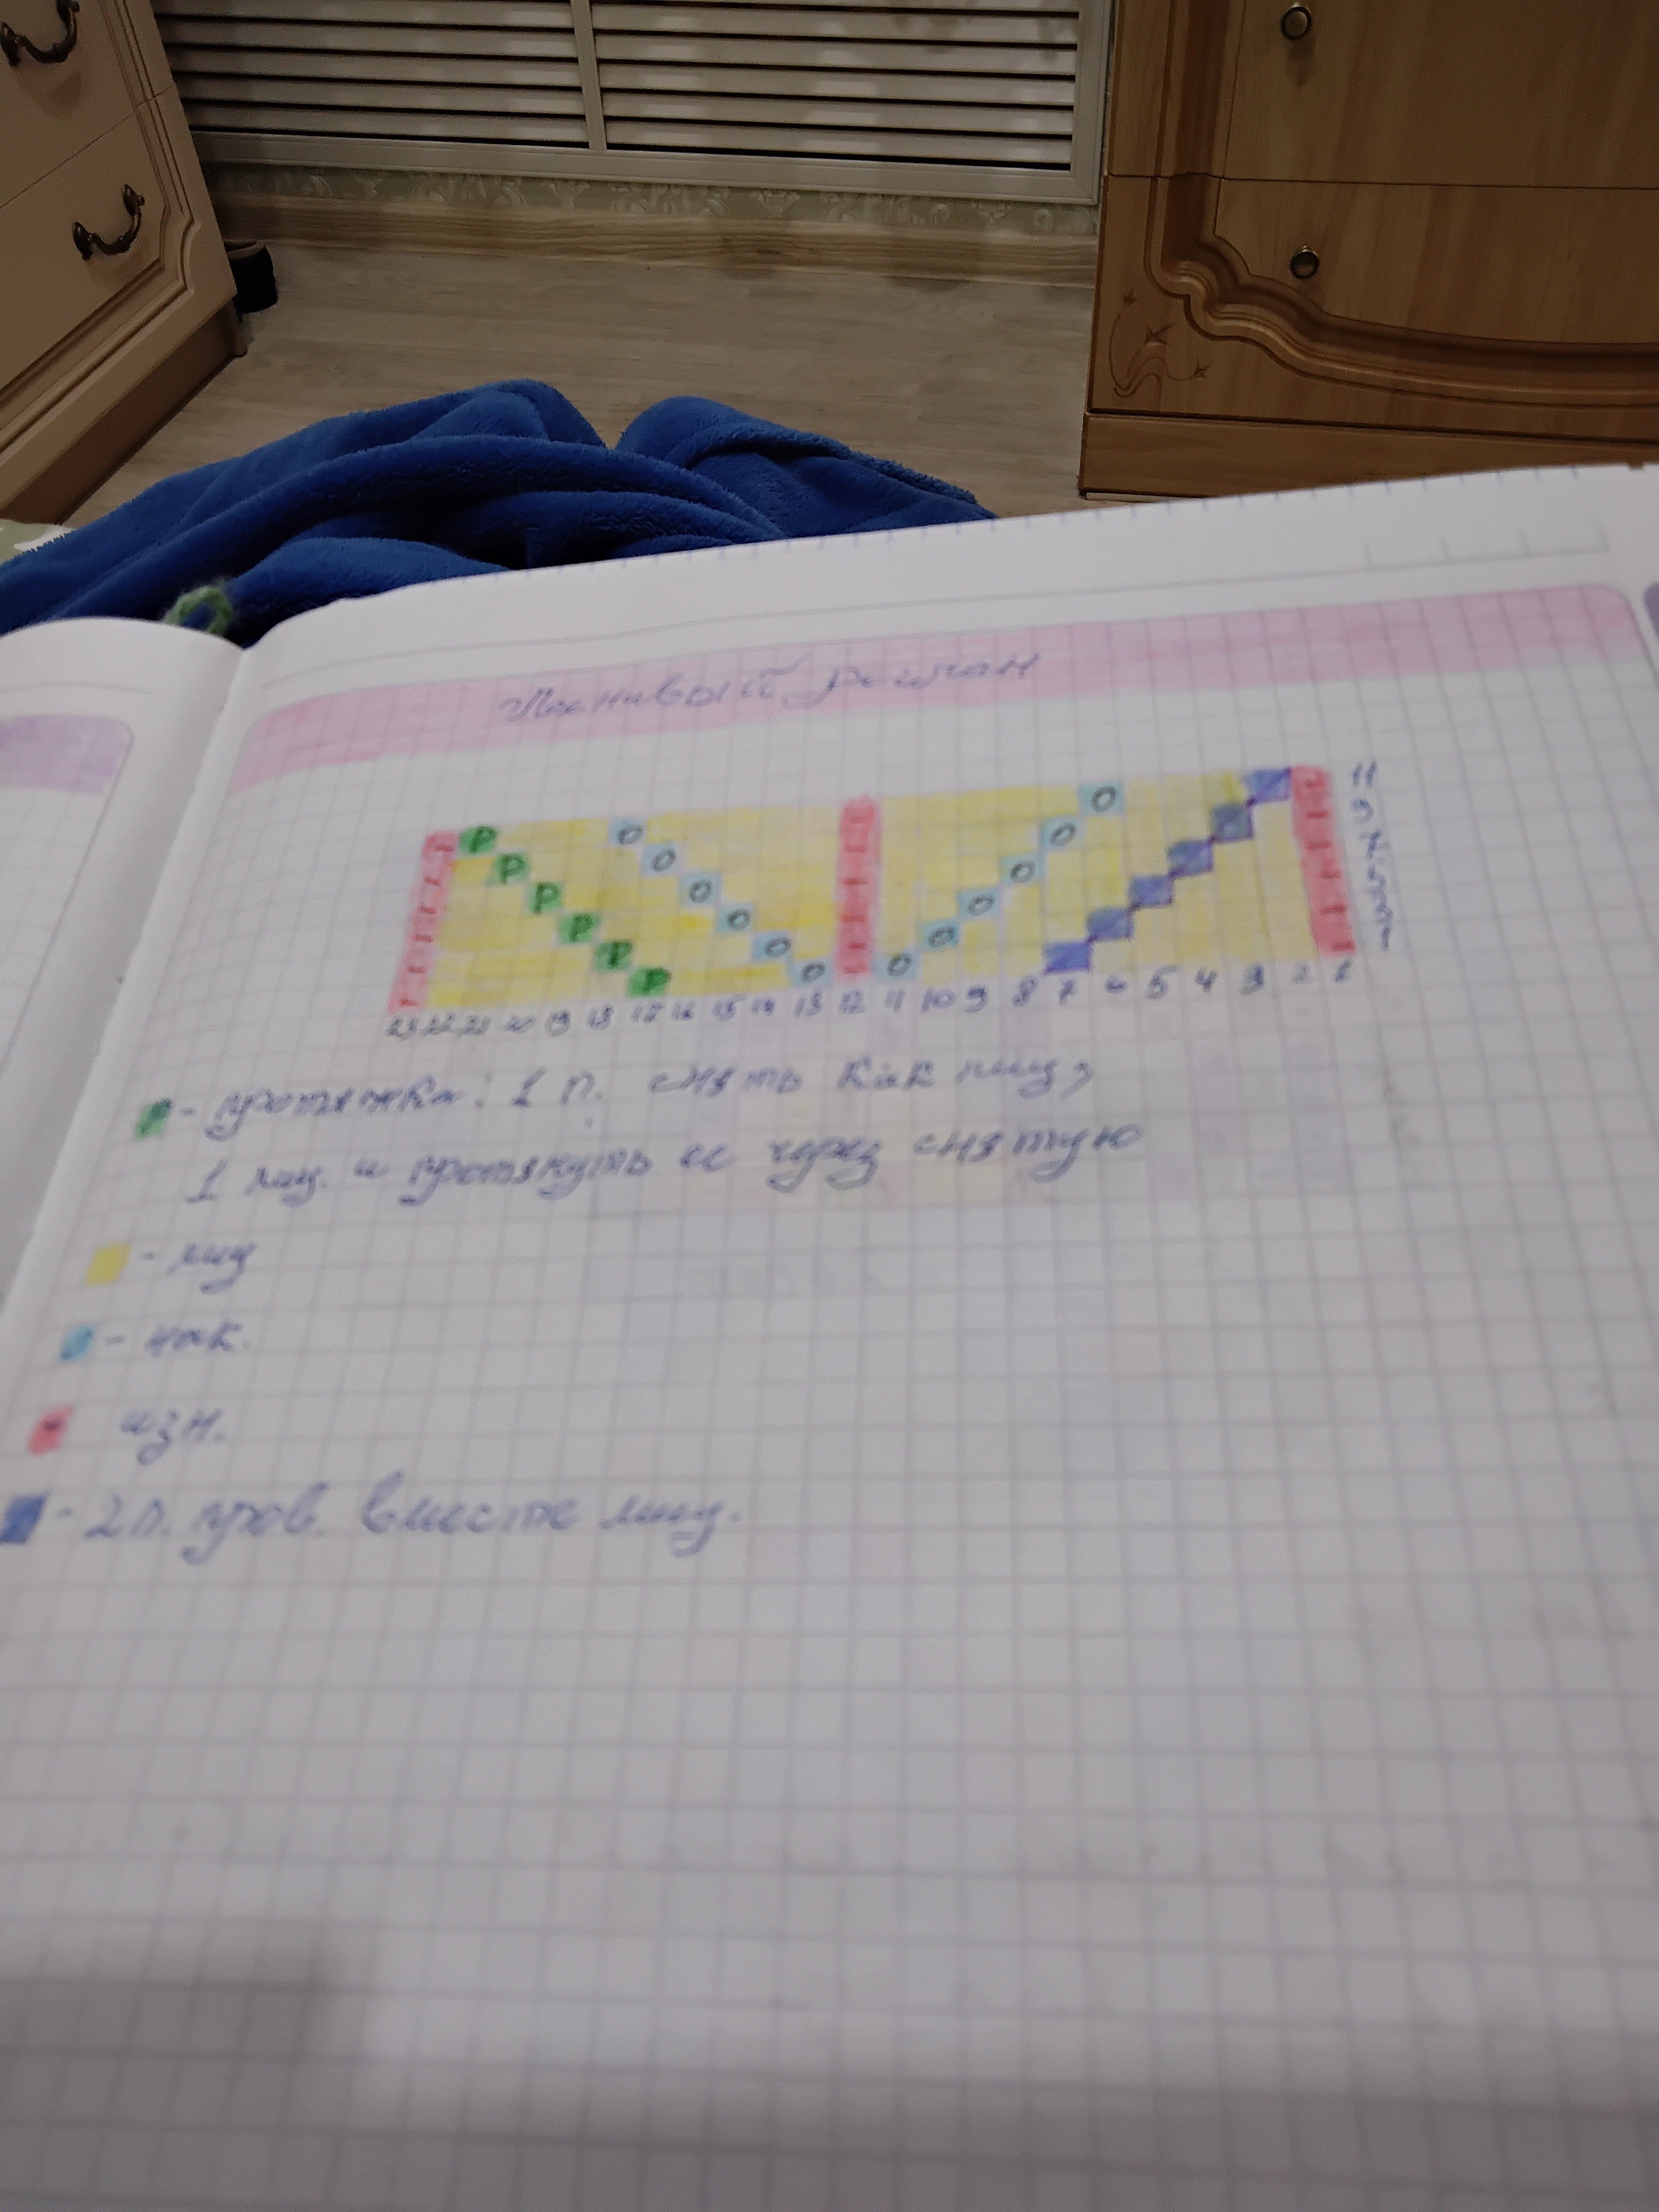 Ленивый реглан
P O - O 11
P O - O 9
P O - O 7
P O - O 5
P O - O 3
P O - O 1
23 22 21 20 19 18 17 16 15 14 13 12 11 10 9 8 7 6 5 4 3 2 1
P - протяжка: 1 п. снять как лиц,
1 лиц. и протянуть ее через снятую
- лиц
O - нак.
- изн.
- 2 п. пров. вместе лиц.